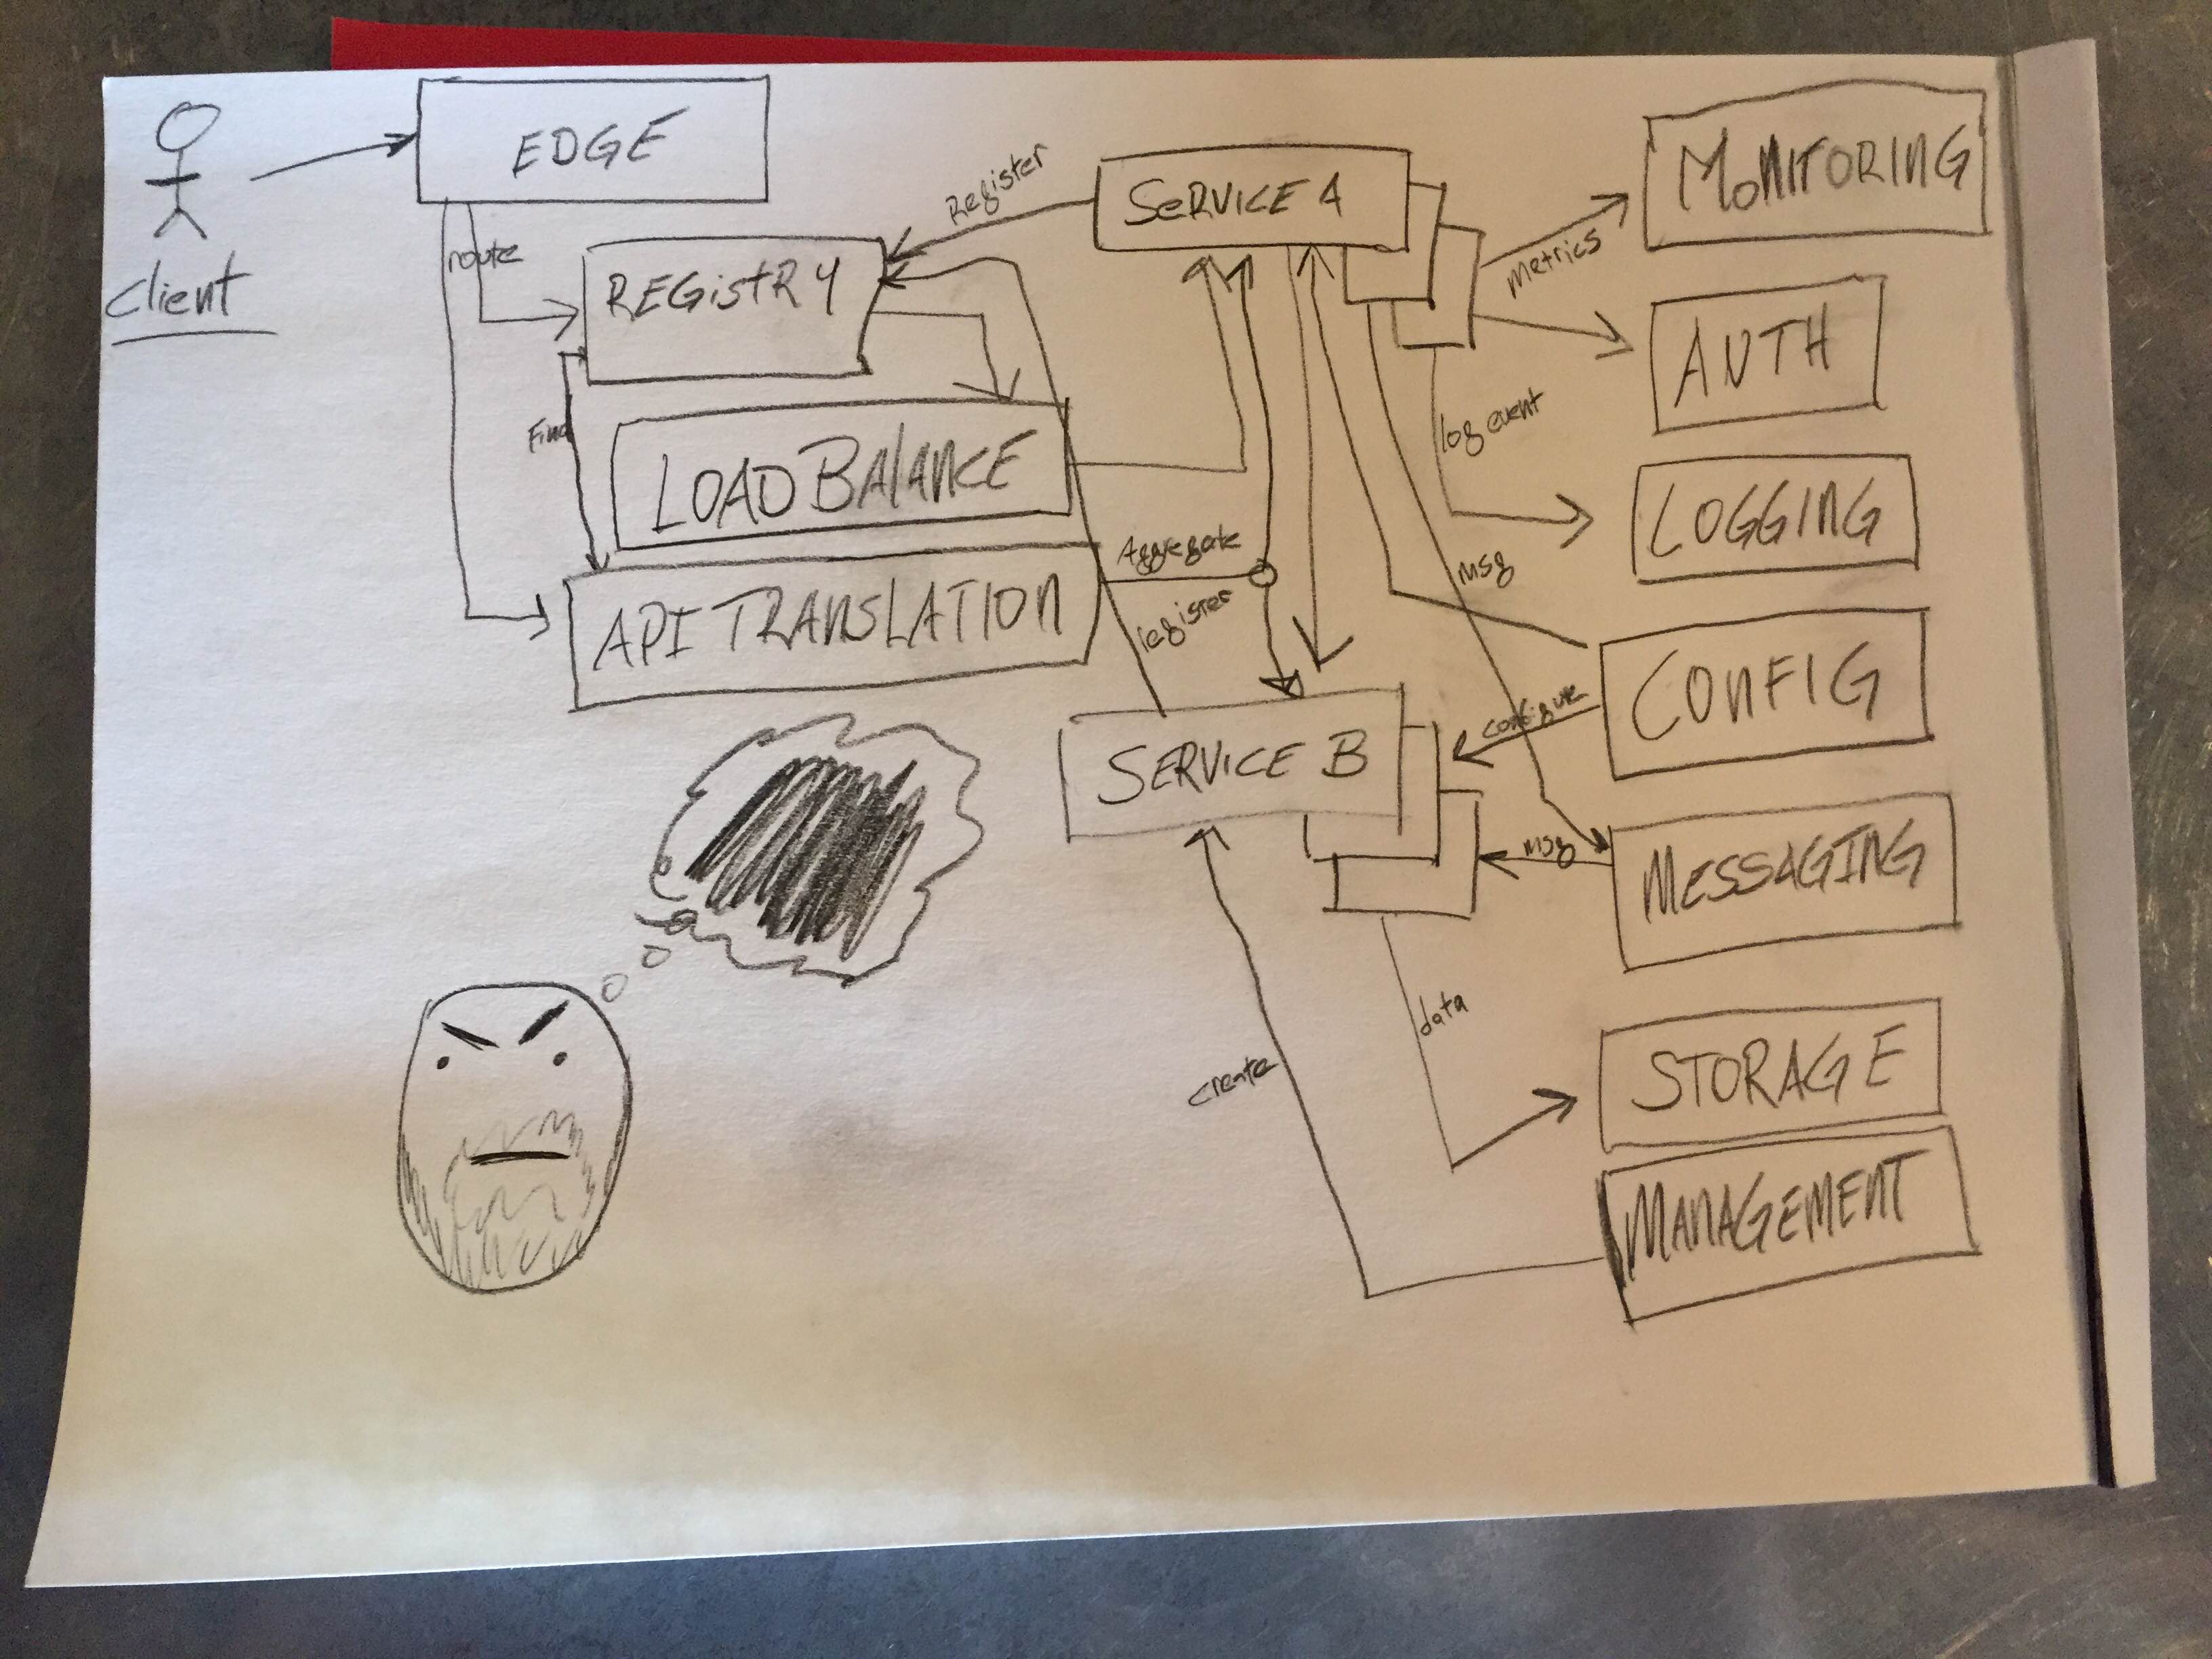 Client
EDGE
route
REGISTRY
Find
LOAD BALANCE
API TRANSLATION
Register
Aggregate
register
SERVICE A
SERVICE B
metrics
log event
msg
configure
msg
data
create
MONITORING
AUTH
LOGGING
CONFIG
MESSAGING
STORAGE
MANAGEMENT